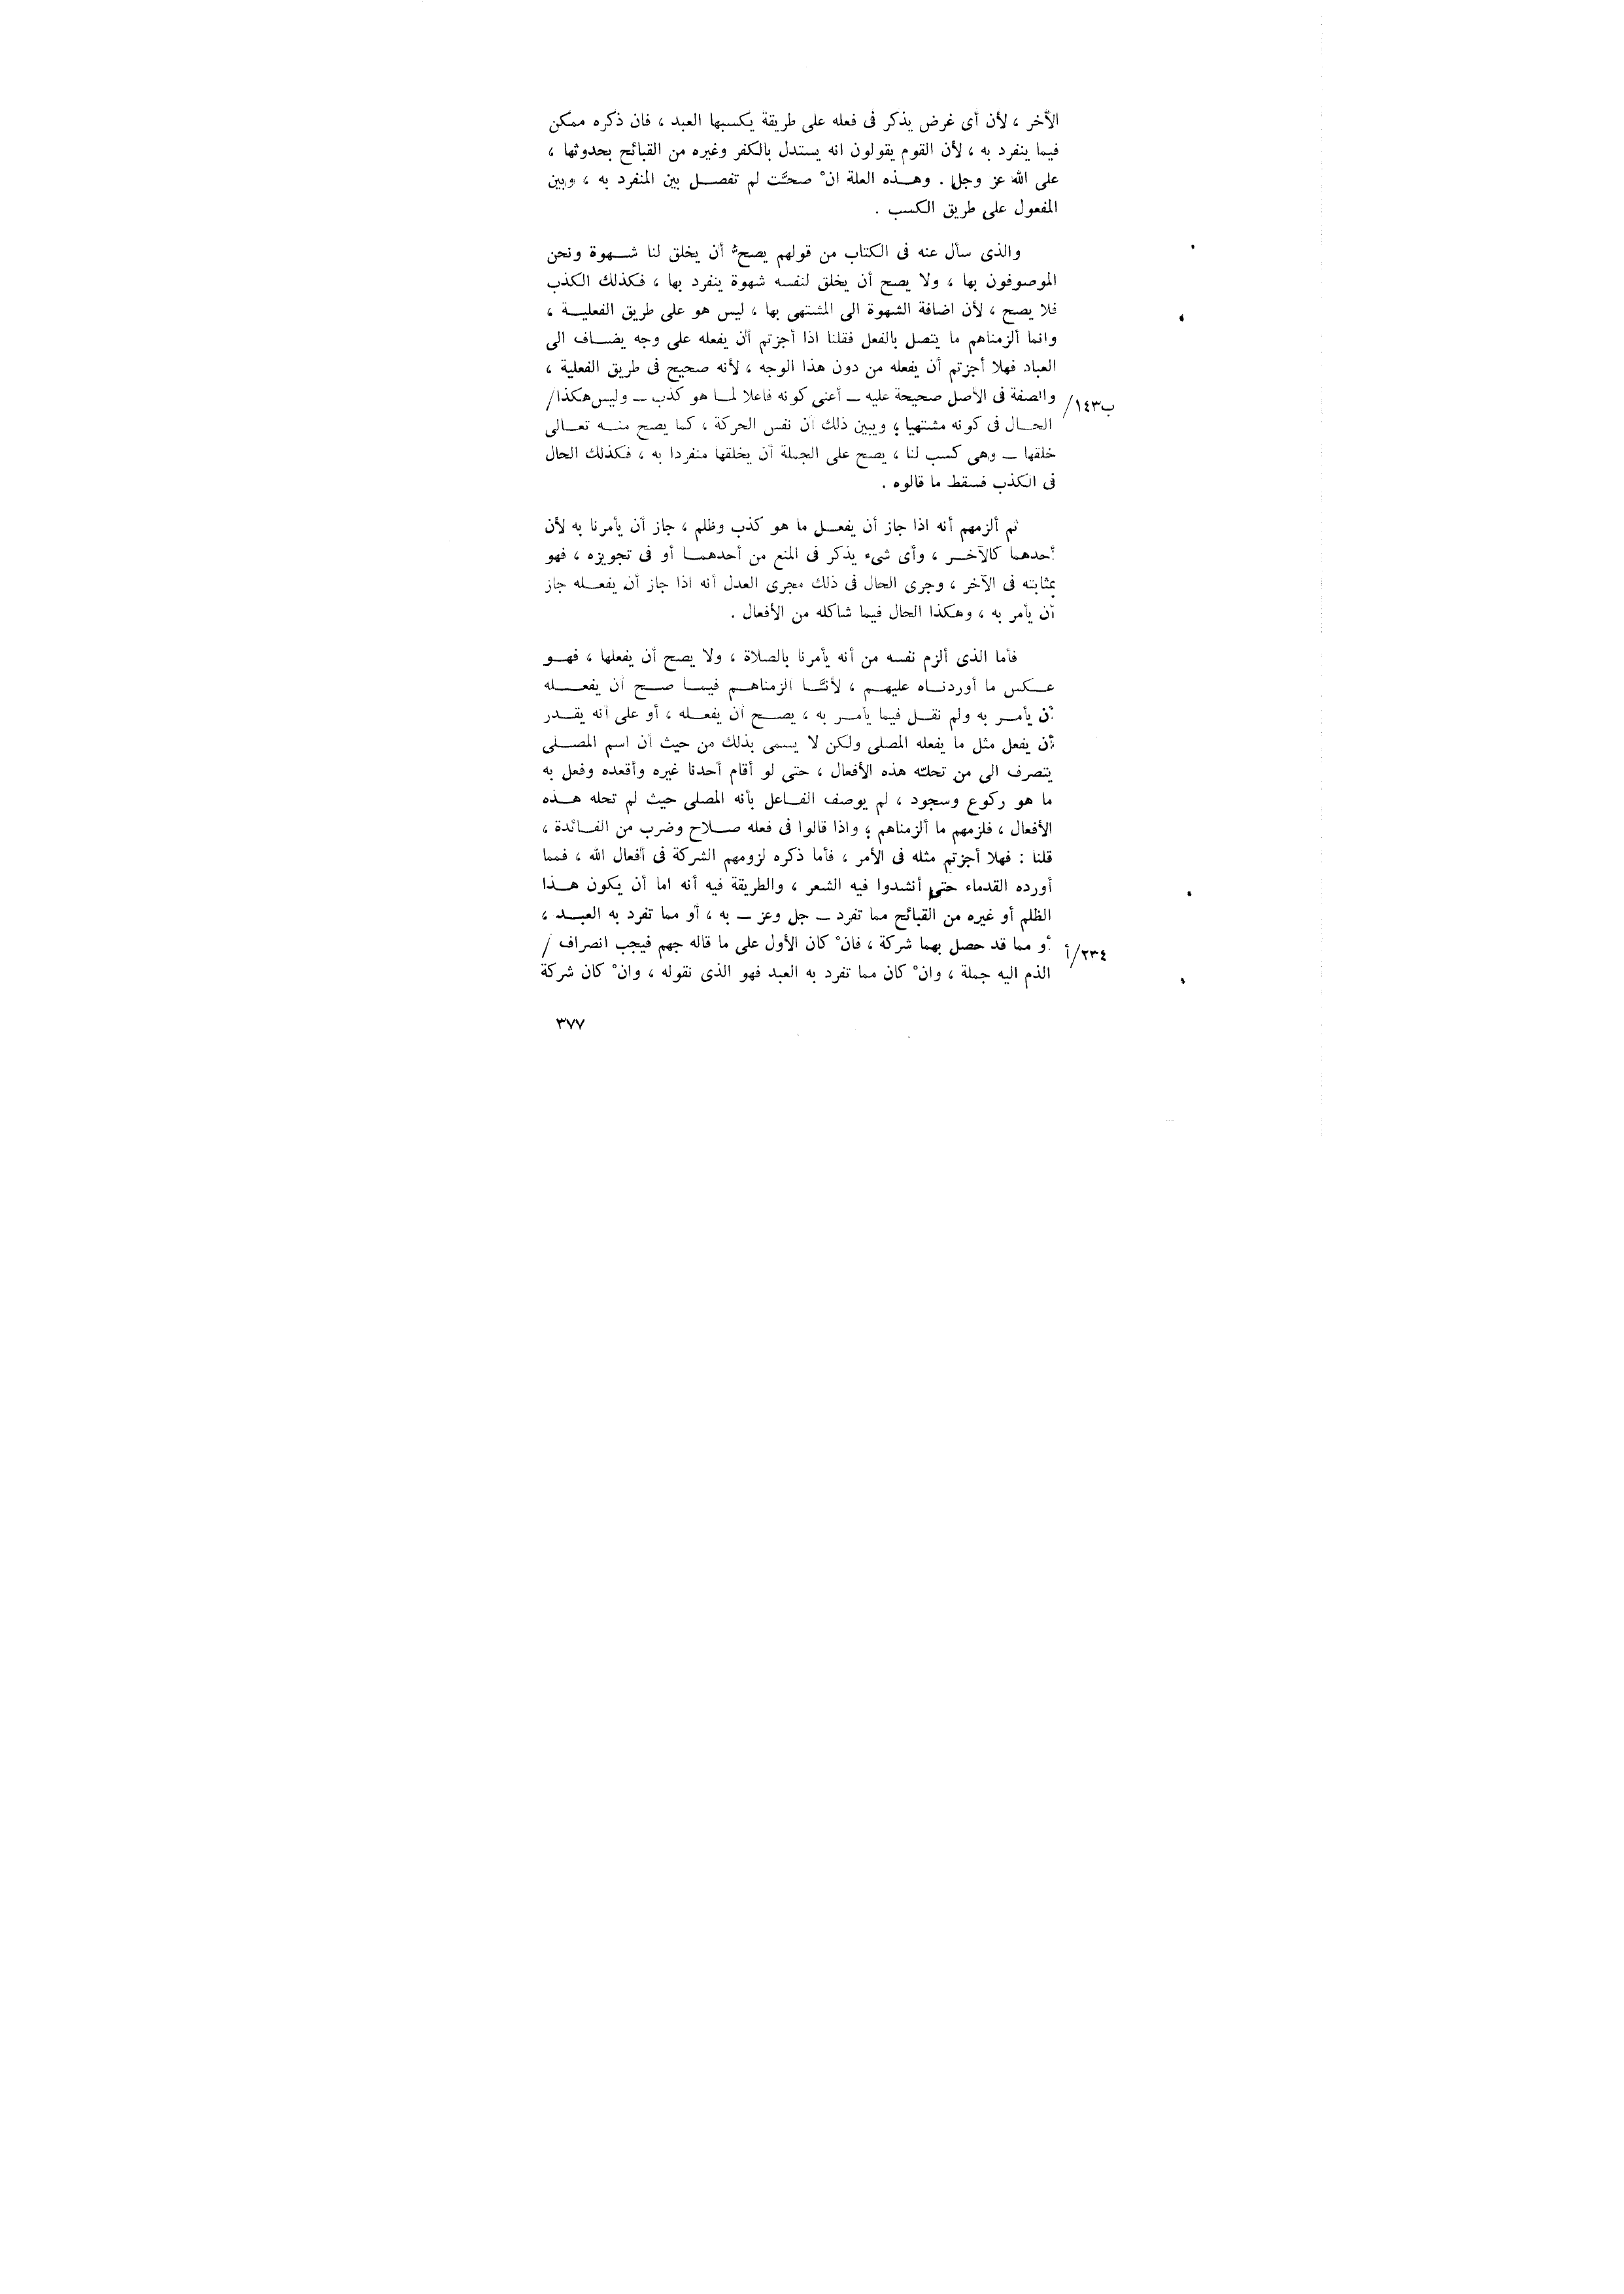 الآخر ، لأن أى غرض يذكر فى فعله على طريقة يكسبها العبد ، فان ذكره ممكن
فيما ينفرد به ، لأن القوم يقولون انه يستدل بالكفر وغيره من القبائح بحدوثها ،
على الله عز وجل . وهــذه العلة انْ صحَّت لم تفصــل بين المنفرد به ، وبين
المفعول على طريق الكسب .
والذى سأل عنه فى الكتاب من قولهم يصح أن يخلق لنا شــهوة ونحن
الموصوفون بها ، ولا يصح أن يخلق لنفسه شهوة ينفرد بها ، فكذلك الكذب
فلا يصح ، لأن اضافة الشهوة الى المشتهى بها ، ليس هو على طريق الفعليــة ،
وانما ألزمناهم ما يتصل بالفعل فقلنا اذا أجزتم أن يفعله على وجه يضــاف الى
العباد فهلا أجزتم أن يفعله من دون هذا الوجه ، لأنه صحيح فى طريق الفعلية ،
والصفة فى الأصل صحيحة عليه ـ أعنى كونه فاعلا لمــا هو كذب ـ وليس هكذا/
١٤٣ب/
الحــال فى كونه مشتهيا ؛ ويبين ذلك أن نفس الحركة ، كما يصح منــه تعــالى
خلقها ـ وهى كسب لنا ، يصح على الجملة أن يخلقها منفردا به ، فكذلك الحال
فى الكذب فسقط ما قالوه .
ثم ألزمهم أنه اذا جاز أن يفعــل ما هو كذب وظلم ، جاز أن يأمرنا به لأن
أحدهما كالآخــر ، وأى شىء يذكر فى المنع من أحدهمــا أو فى تجويزه ، فهو
بمثابته فى الآخر ، وجرى الحال فى ذلك مجرى العدل أنه اذا جاز أن يفعــله جاز
أن يأمر به ، وهكذا الحال فيما شاكله من الأفعال .
فأما الذى ألزم نفسه من أنه يأمرنا بالصلاة ، ولا يصح أن يفعلها ، فهــو
عــكس ما أوردنــاه عليهــم ، لأنتَّــا الزمناهــم فيمــا صــح أن يفعــله
أن يأمــر به ولم نقــل فيما يأمــر به ، يصــح أن يفعــله ، أو على أنه يقــدر
أن يفعل مثل ما يفعله المصلى ولكن لا يسمى بذلك من حيث أن اسم المصــلى
يتصرف الى من تحلـّه هذه الأفعال ، حتى لو أقام أحدنا غيره وأقعده وفعل به
ما هو ركوع وسجود ، لم يوصف الفــاعل بأنه المصلى حيث لم تحله هــذه
الأفعال ، فلزمهم ما ألزمناهم ؛ واذا قالوا فى فعله صــلاح وضرب من الفــائدة ،
قلنا : فهلا أجزتم مثله فى الأمر ، فأما ذكره لزومهم الشركة فى أفعال الله ، فمما
أورده القدماء حتى أنشدوا فيه الشعر ، والطريقة فيه أنه اما أن يكون هــذا
الظلم أو غيره من القبائح مما تفرد ـ جل وعز ـ به ، أو مما تفرد به العبــد ،
أو مما قد حصل بهما شركة ، فانْ كان الأول على ما قاله جهم فيجب انصراف /
٢٣٤/أ
الذم اليه جملة ، وانْ كان مما تفرد به العبد فهو الذى نقوله ، وانْ كان شركة
٣٧٧